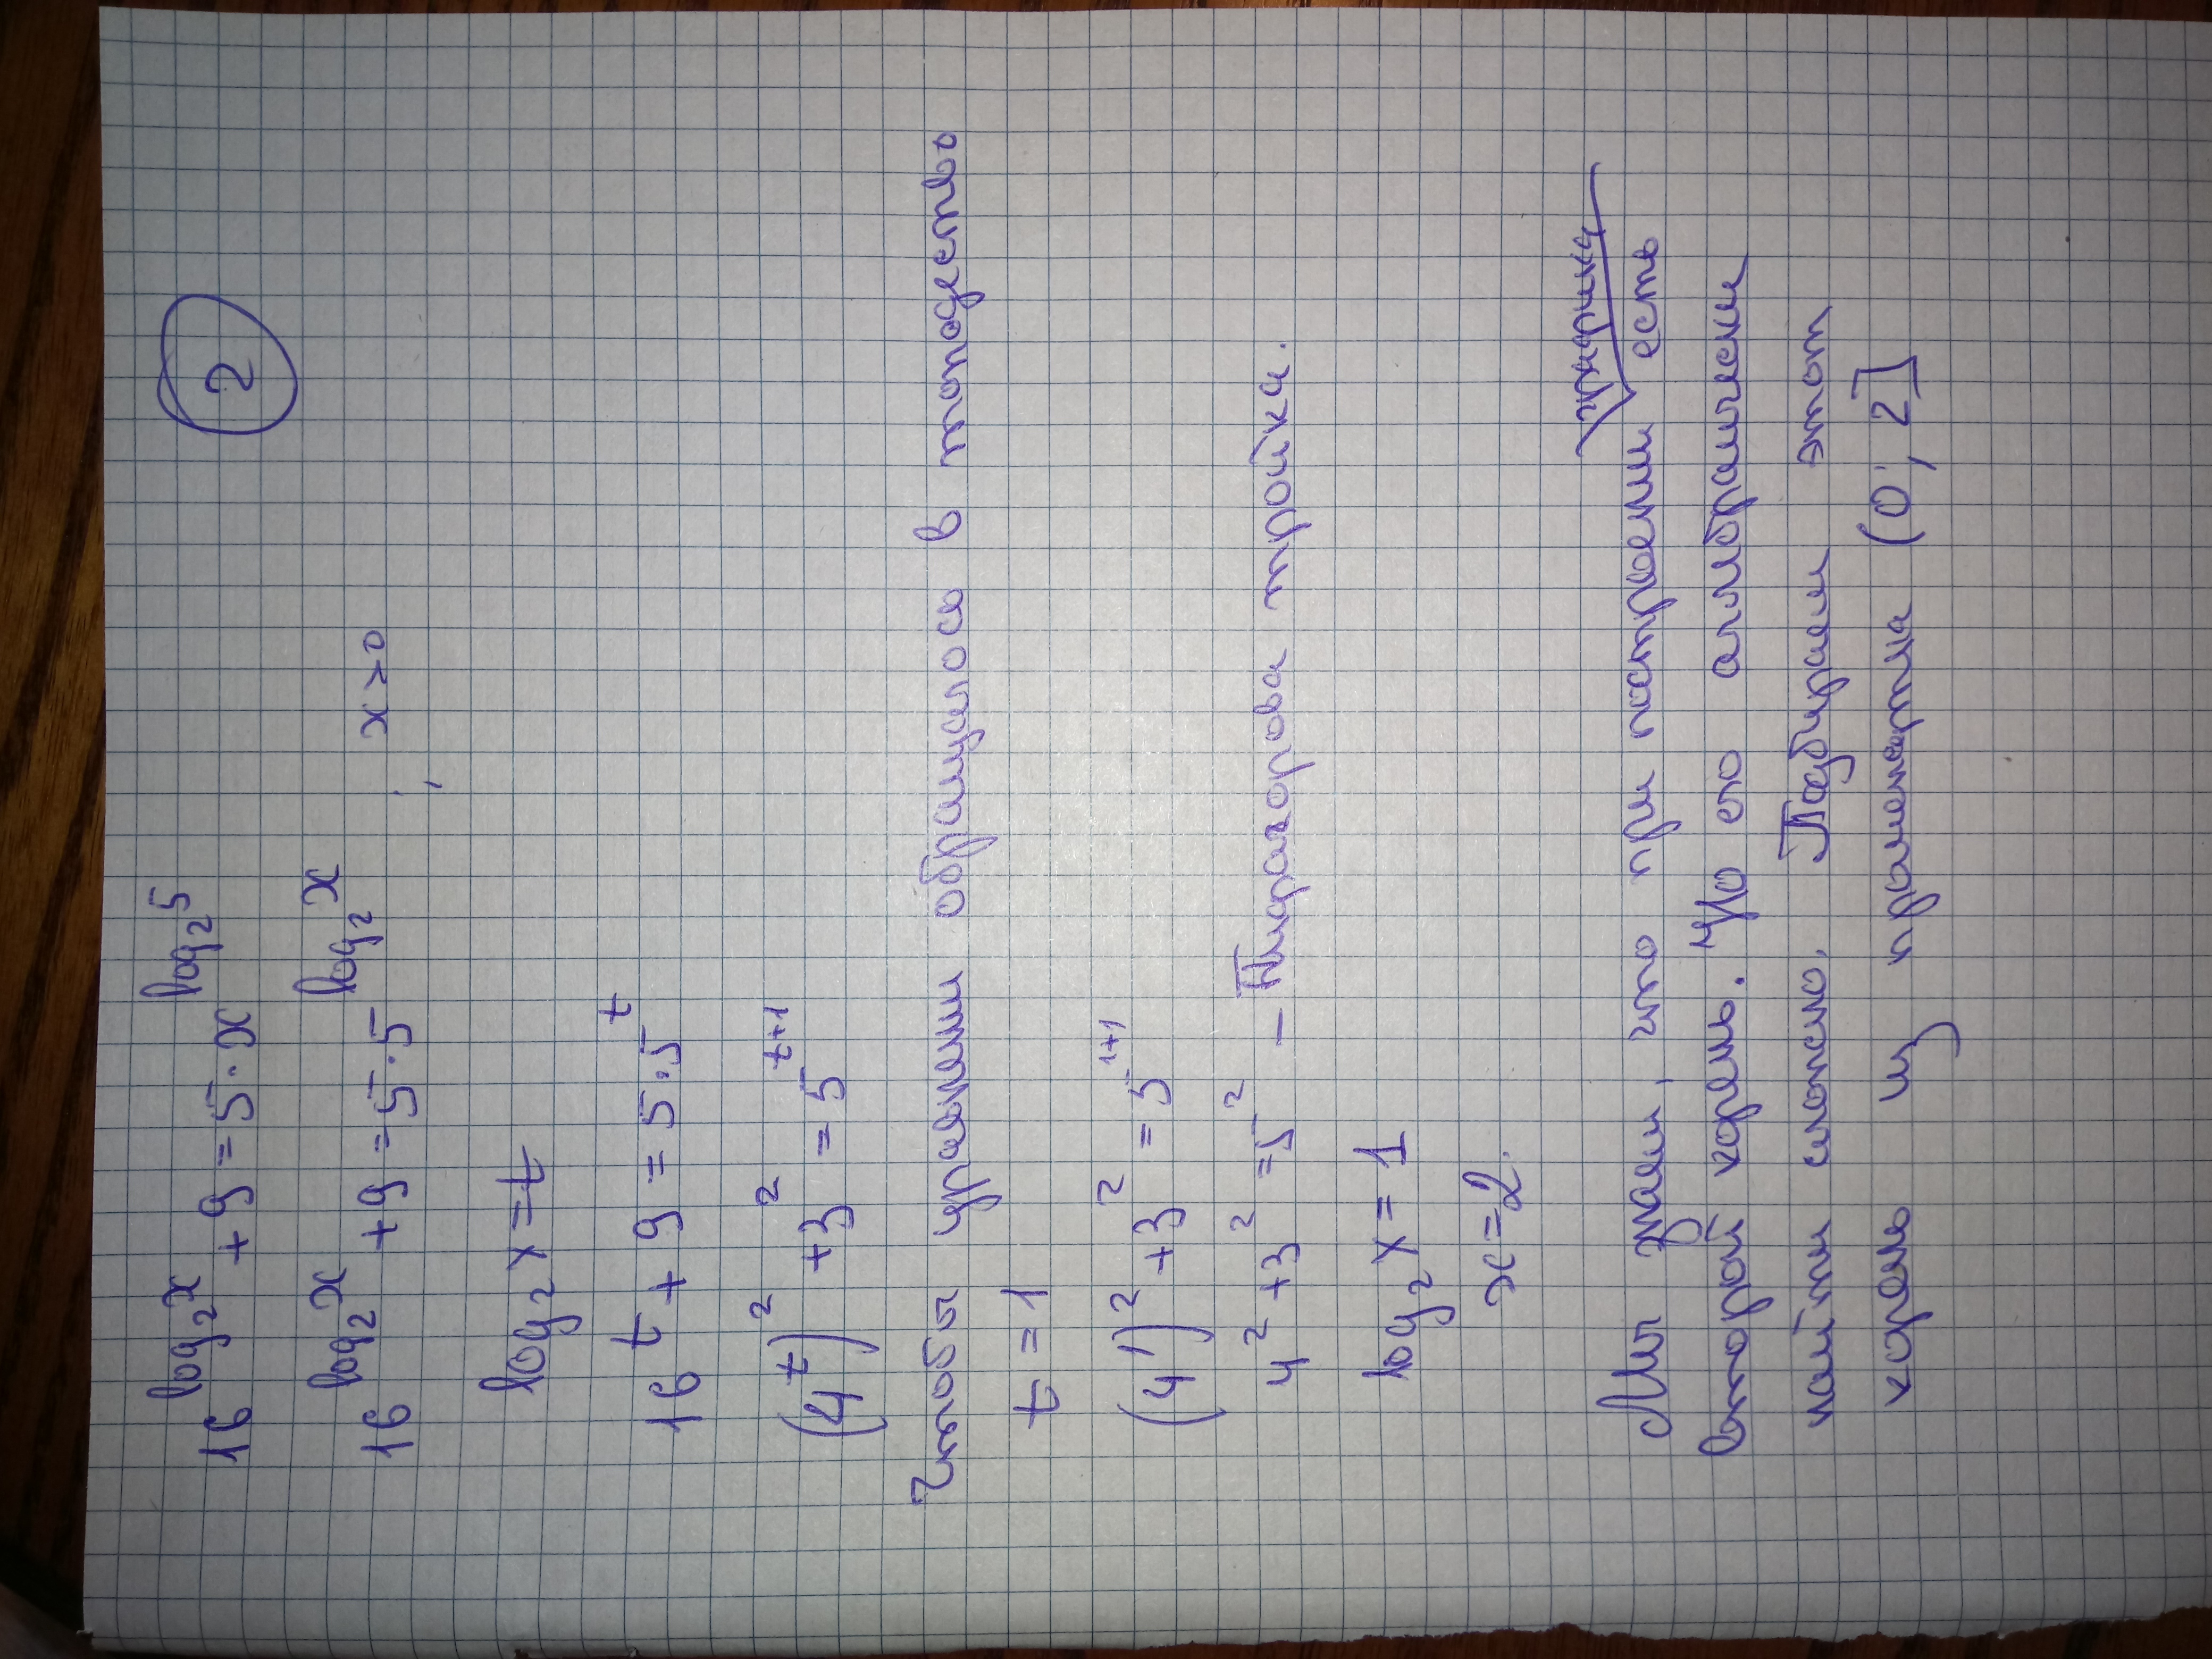 2
16^(log₂x) + 9 = 5·x^(log₂5)
16^(log₂x) + 9 = 5·5^(log₂x) ; x>0
log₂x = t
16^t + 9 = 5·5^t
(4^t)² + 3² = 5^(t+1)
Чтобы уравнение обращалось в тождество
t = 1
(4¹)² + 3² = 5^(1+1)
4² + 3² = 5² – Пифагорова тройка.
log₂x = 1
x = 2.
Мы знаем, что при построении графика есть
второй корень. Но его алгебраически
найти сложно. Подбираем этот
корень из промежутка (0; 2]